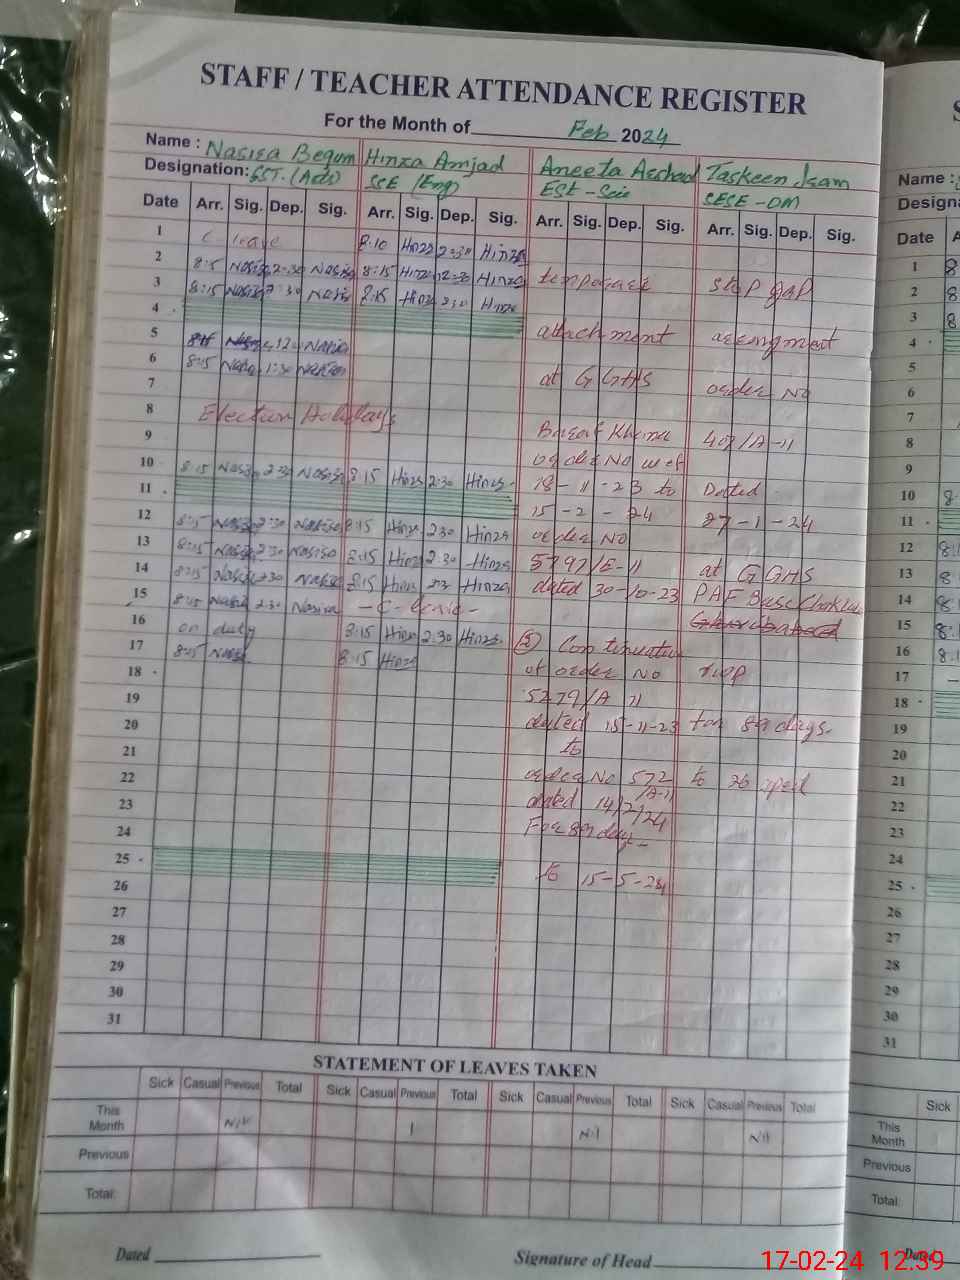 STAFF / TEACHER ATTENDANCE REGISTER
For the Month of Feb 2024
Name : Nasira Begum Hinza Amjad Aneeta Arshad Taskeen Isam
Designation: EST. (Arts) SSE (Eng) ESE - Scie SESE - DM
Date Arr. Sig. Dep. Sig. Arr. Sig. Dep. Sig. Arr. Sig. Dep. Sig. Arr. Sig. Dep. Sig.
1 C - leave 8:10 Hinza 2:30 Hinza
2 8:5 Nasira 2:30 Nasira 8:15 Hinza 12:30 Hinza temporary stop gap
3 8:15 Nasira 2:30 Nasira 8:15 Hinza 2:30 Hinza
4 attachment
5 Nasira 12 Nasira
6 8:15 Nasira 1:30 Nasira at GGHS order No
7
8 Election Holidays 407/A-11
9
10 8:15 Nasira 2:30 Nasira 8:15 Hinza 2:30 Hinza order No wef
11 18-11-23 to Dated
12 8:15 Nasira 2:30 Nasira 8:15 Hinza 2:30 Hinza 15-2-24 27-1-24
13 8:15 Nasira 2:30 Nasira 8:15 Hinza 2:30 Hinza order No
14 8:15 Nasira 2:30 Nasira 8:15 Hinza Hinza 5797/E-11 at GGHS
15 8:15 Nasira 2:30 Nasira - C - leave - dated 30-10-23 PAF Base
16 on duty 8:15 Hinza 2:30 Hinza
17 8:15 Nasira 8:15 Hinza Continuation
18 of order No
19 5279/A 11
20 dated 15-11-23 for 89 days.
21 to
22 order No 572 /A-11 to 26 April
23 dated 14/2/24
24 For 89 days -
25
26 to 15-5-24
27
28
29
30
31
STATEMENT OF LEAVES TAKEN
Sick Casual Previous Total Sick Casual Previous Total Sick Casual Previous Total Sick Casual Previous Total
This Month Nil 1 Nil Nil
Previous
Total:
Dated Signature of Head
Name :
Date
1 8
2 8
3 8
4
5
6
7
8
9
10 8
11
12 8:1
13 8
14 8
15 8:
16 8:1
17 -
18
19
20
21
22
23
24
25
26
27
28
29
30
31
Sick
This Month
Previous
Total:
Dated
17-02-24 12:39